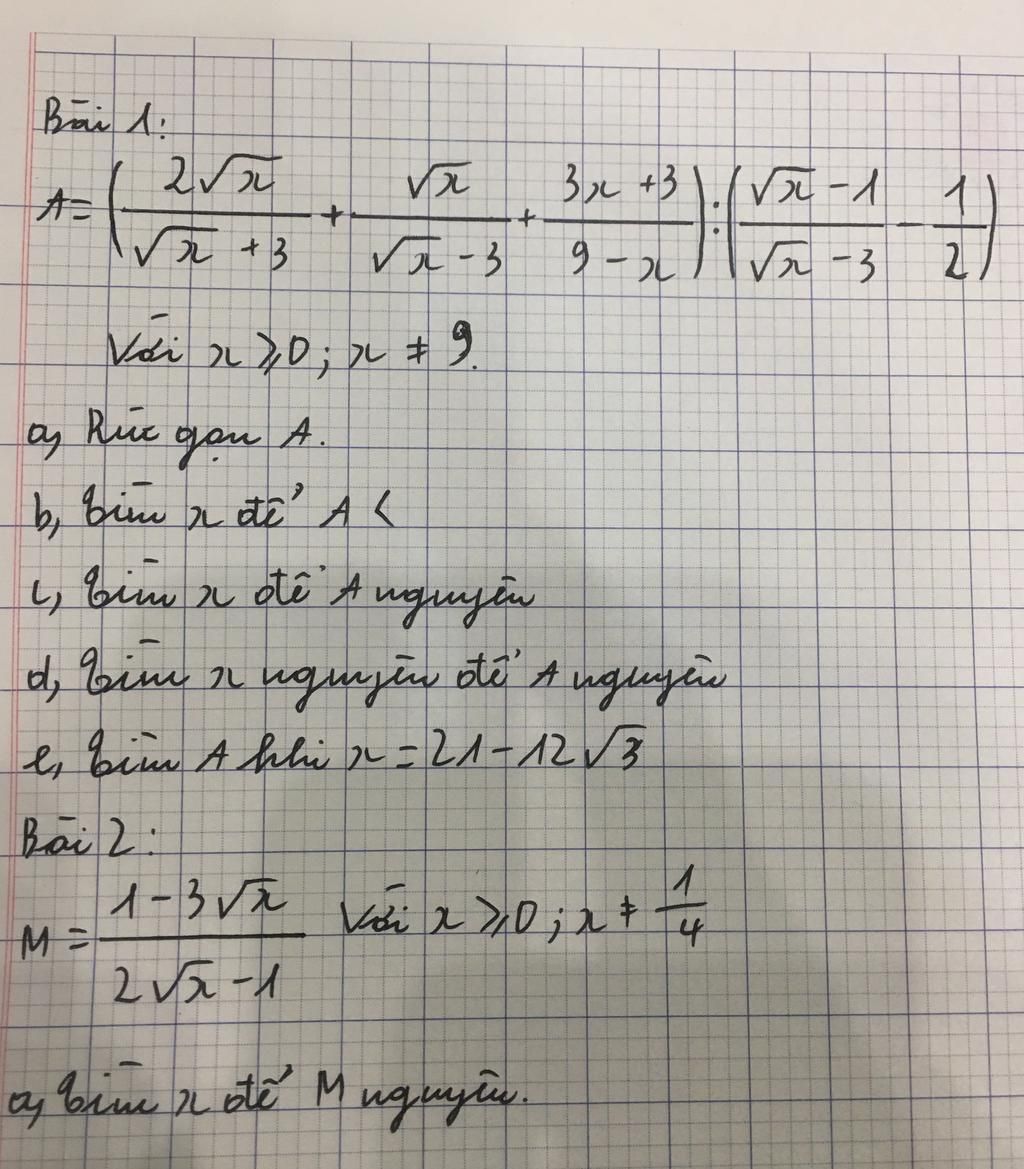 Bài 1:
A = (2√x / (√x + 3) + √x / (√x - 3) + (3x + 3) / (9 - x)) : ((√x - 1) / (√x - 3) - 1/2)
Với x ≥ 0 ; x ≠ 9.
a, Rút gọn A.
b, Tìm x để A <
c, Tìm x để A nguyên
d, Tìm x nguyên để A nguyên
e, Tìm A khi x = 21 - 12√3
Bài 2:
M = (1 - 3√x) / (2√x - 1) Với x ≥ 0 ; x ≠ 1/4
a, Tìm x để M nguyên.